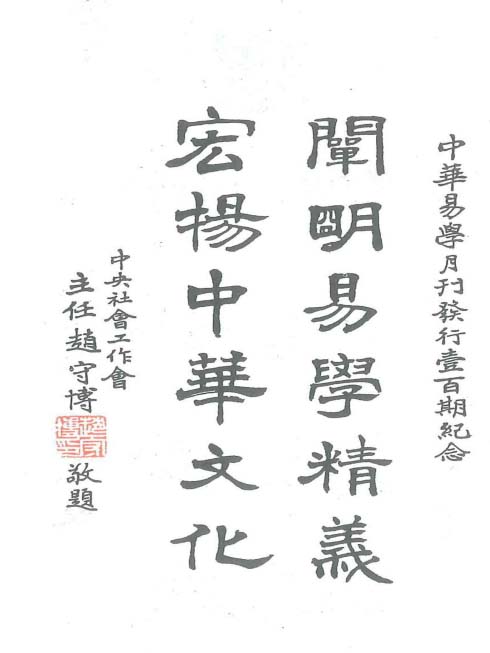 中華易學月刊發行壹百期紀念
闡明易學精義
宏揚中華文化
中央社會工作會
主任趙守博
趙守博印
敬題